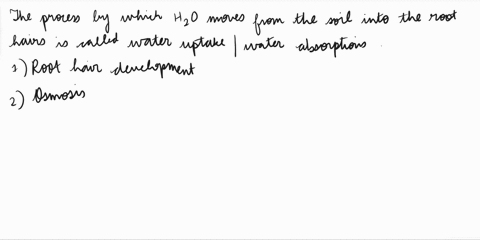 The process by which H₂O moves from the soil into the root
hairs is called water uptake | water absorptions.
1) Root hair development
2) Osmosis